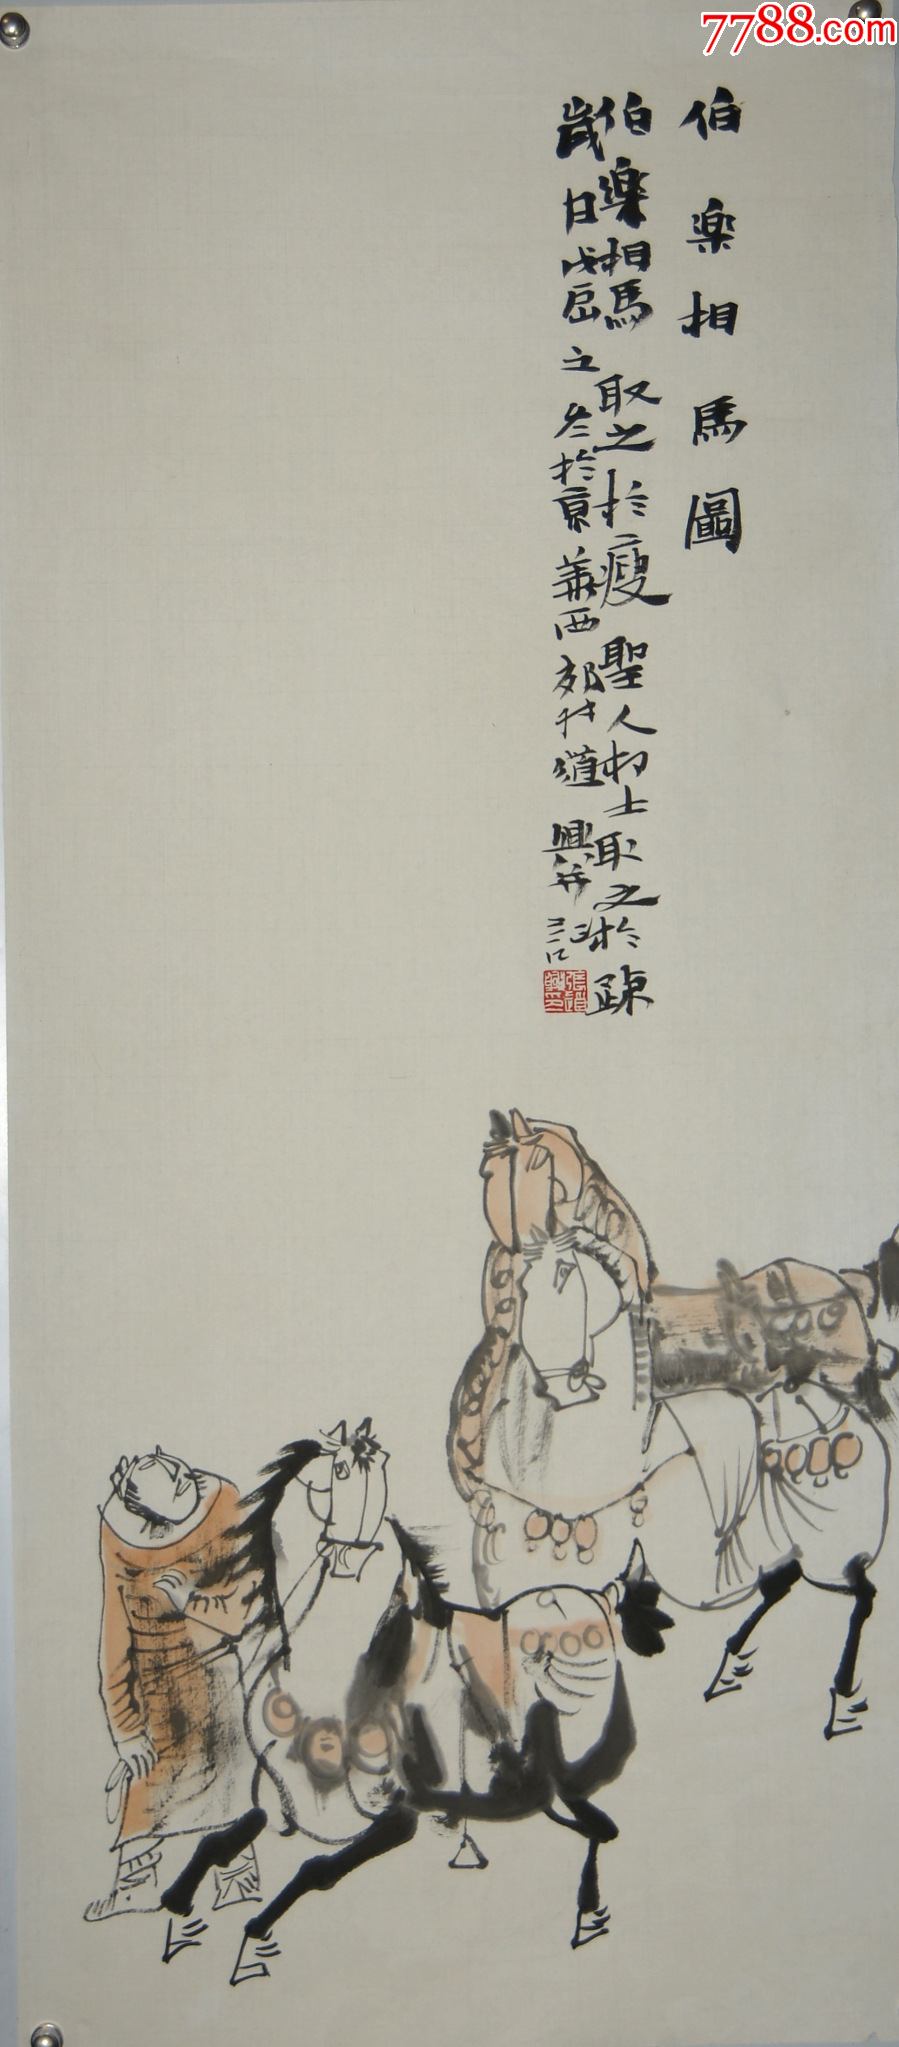 7788.com
伯樂相馬圖
伯樂相馬取之於瘦聖人相士取之於疎
歲日戊 之冬於京華西郊 道興并記
張道興印